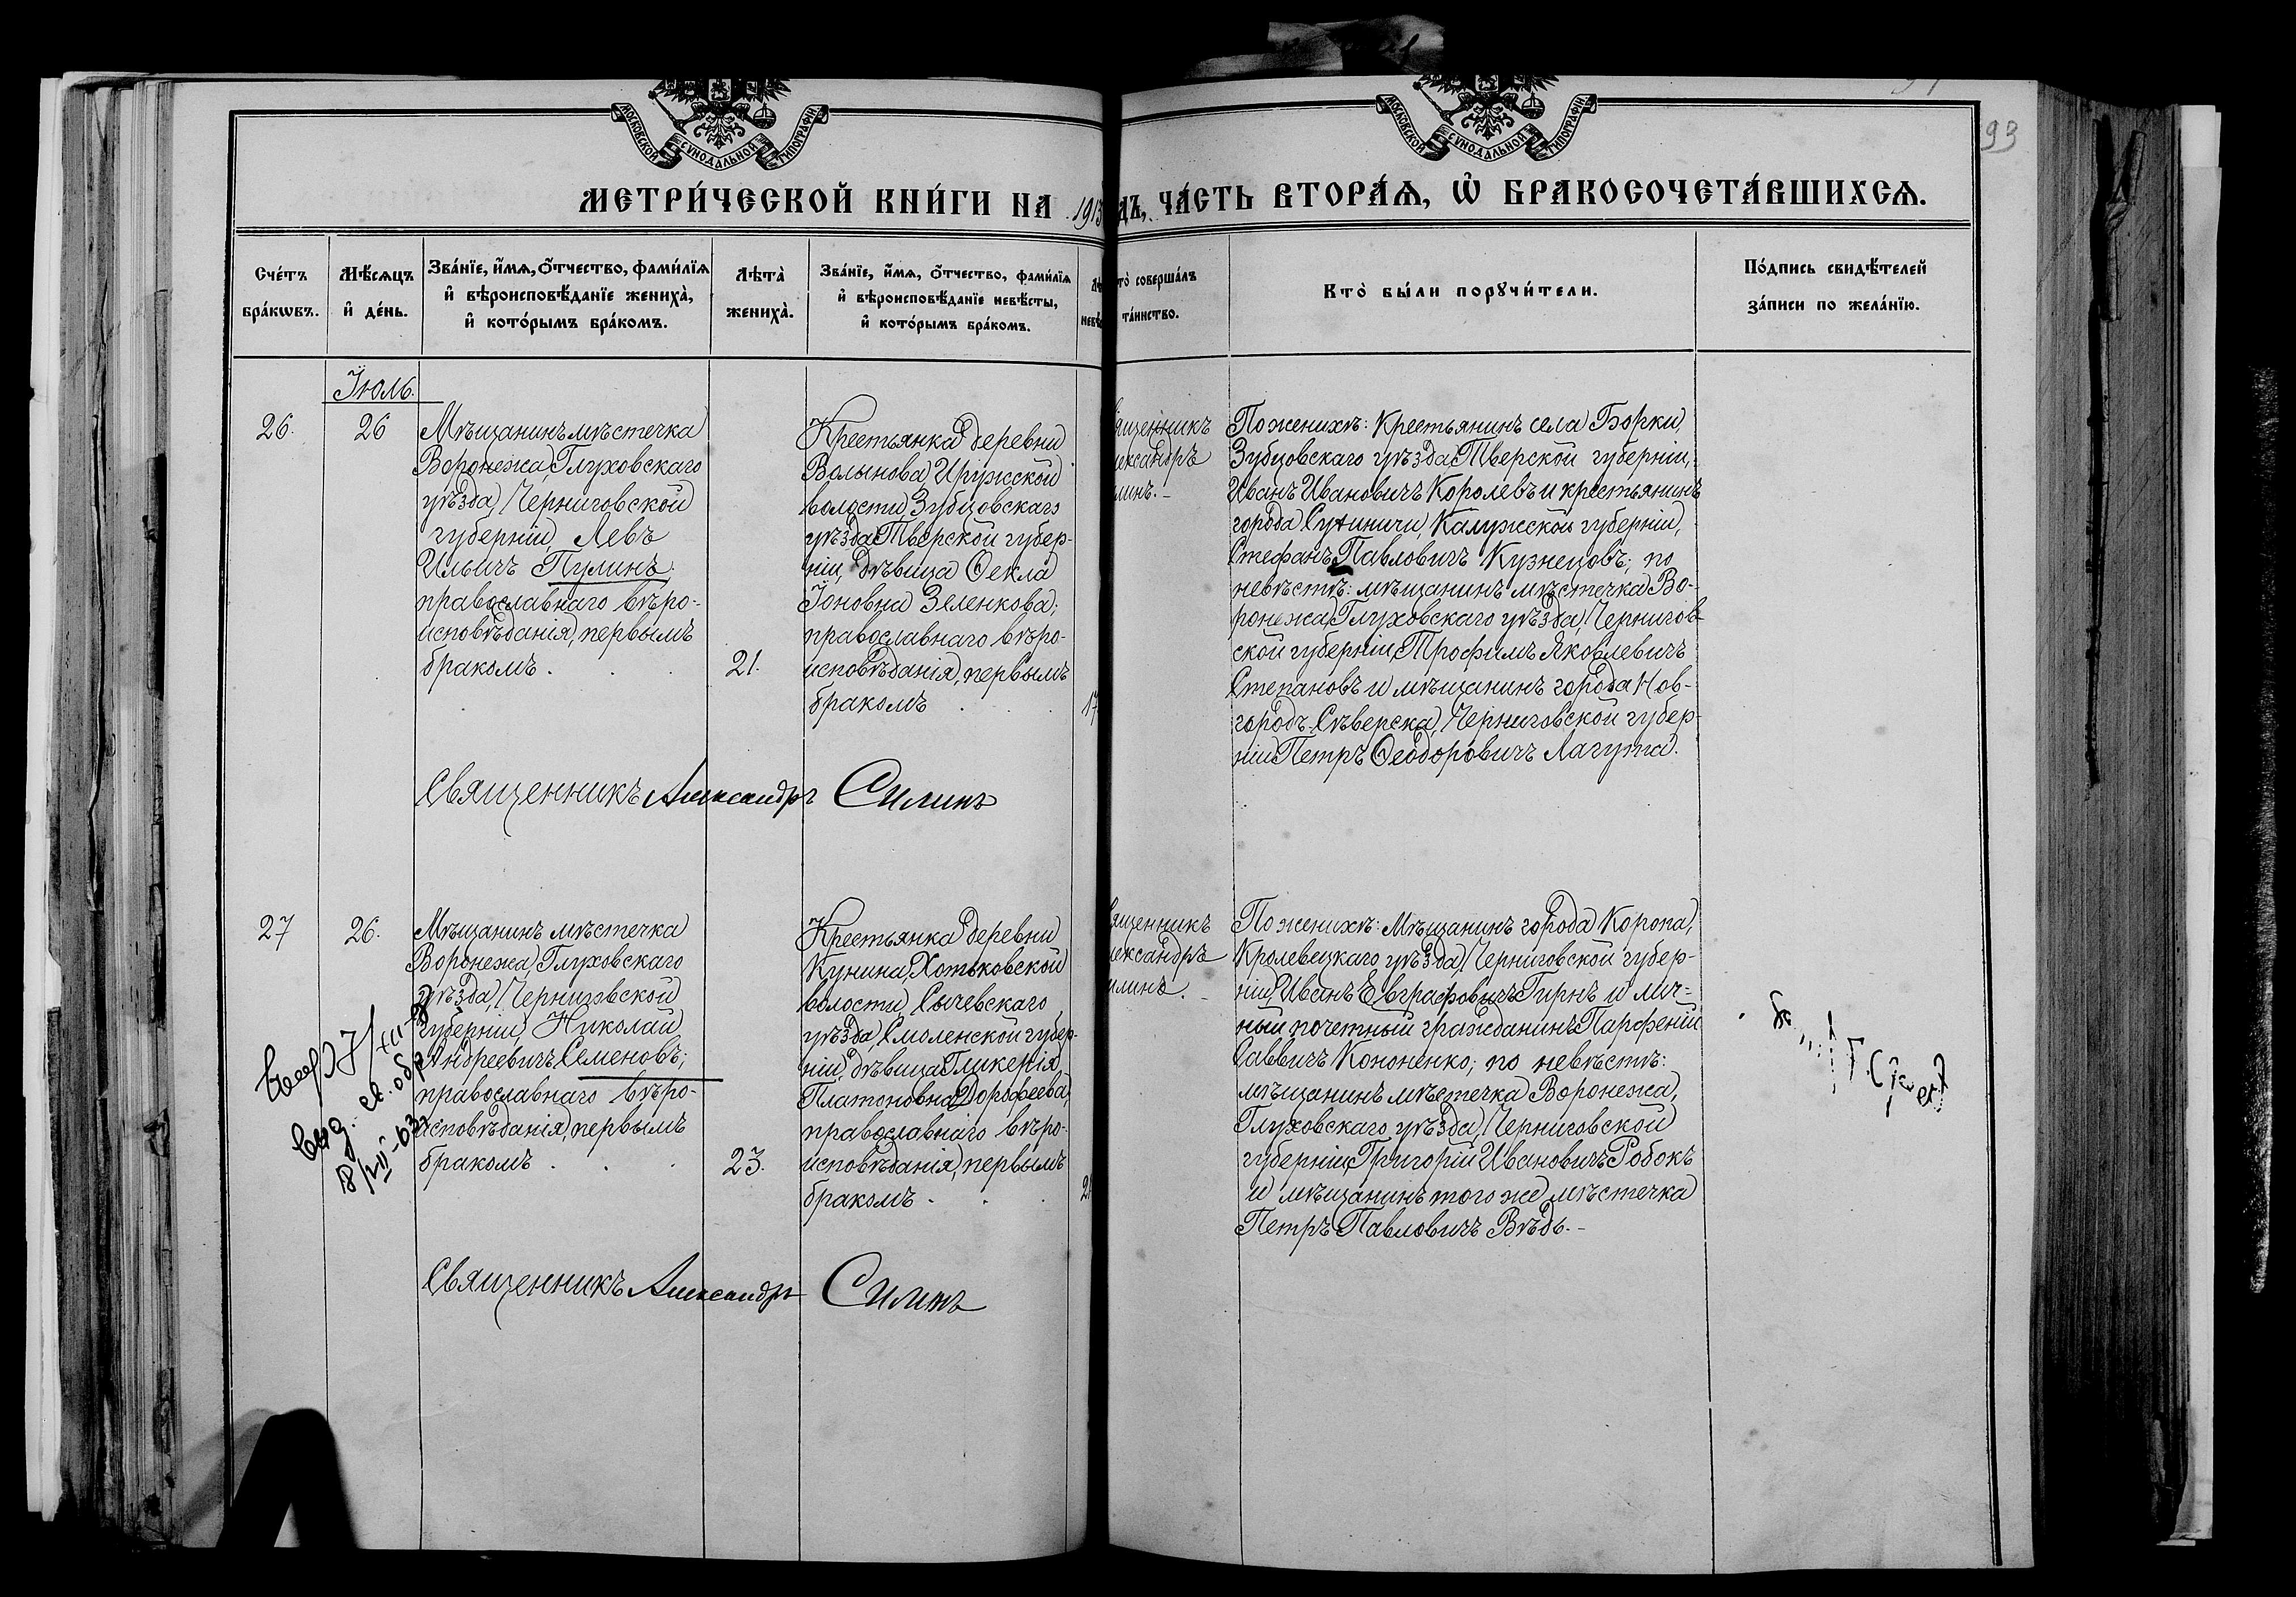 93
МОСКОВСКОЙ СѴНОДАЛЬНОЙ ТИПОГРАФІИ.
МОСКОВСКОЙ СѴНОДАЛЬНОЙ ТИПОГРАФІИ.
МЕТРИ́ЧЕСКОЙ КНИ́ГИ НА 1913
ДЪ, ЧА́СТЬ ВТОРА́Ѧ, Ѡ҆ БРАКОСОЧЕТА́ВШИХСѦ.
Сче́тъ
бра́кѡвъ.
Мѣ́сѧцъ
и҆ де́нь.
Зва́нїе, и҆́мѧ, ѻ҆́тчество, фами́лїѧ
и҆ вѣроисповѣ́данїе жениха̀,
и҆ кото́рымъ бра́комъ.
Лѣта̀
жениха̀.
Зва́нїе, и҆́мѧ, ѻ҆́тчество, фами́лїѧ
и҆ вѣроисповѣ́данїе невѣ́сты,
и҆ кото́рымъ бра́комъ.
то̀ соверша́лъ
та́инство.
Кто̀ бы́ли порꙋчи́тели.
По́дпись свидѣ́телей
за́писи по жела́нїю.
Іюль.
26.
26
Мѣщанинъ мѣстечка
Воронежа, Глуховскаго
уѣзда, Черниговской
губерніи Левъ
Ильичъ Пулинъ;
православнаго вѣро-
исповѣданія, первымъ
бракомъ.
21.
Крестьянка деревни
Волынова, Иружской
волости, Зубцовскаго
уѣзда Тверской губер-
ніи, дѣвица Ѳекла
Іоновна Зеленкова;
православнаго вѣро-
исповѣданія, первымъ
бракомъ
17
ященникъ
ександръ
линъ. -
По женихѣ: Крестьянинъ села Борки,
Зубцовскаго уѣзда, Тверской губерніи,
Иванъ Ивановичъ Королевъ и крестьянинъ
города Сухиничи, Калужской губерніи,
Стефанъ Павловичъ Кузнецовъ; по
невѣстѣ: мѣщанинъ мѣстечка Во-
ронежа Глуховскаго уѣзда, Чернигов-
ской губерніи, Трофимъ Яковлевичъ
Степановъ и мѣщанинъ города Нов-
городъ Сѣверска, Черниговской губер-
ніи Петръ Ѳеодоровичъ Лагута.
Священникъ Александръ Силинъ
27
26.
Мѣщанинъ мѣстечка
Воронежа, Глуховскаго
уѣзда, Черниговской
губерніи, Николай
Андреевичъ Семеновъ;
православнаго вѣро-
исповѣданія, первымъ
бракомъ
23.
Крестьянка деревни
Кунина, Хотьковской
волости, Сычевскаго
уѣзда, Смоленской губер-
ніи, дѣвица Гликерія
Платоновна Дорофеева,
православнаго вѣро-
исповѣданія, первымъ
бракомъ.
21
ященникъ
ександръ
илинъ. -
По женихѣ: Мѣщанинъ города Коропа,
Кролевецкаго уѣзда, Черниговской губер-
ніи, Иванъ Евграфовичъ Гирнъ и лич-
ный почетный гражданинъ Парфеній
Саввичъ Кононенко; по невѣстѣ:
мѣщанинъ мѣстечка Воронежа,
Глуховскаго уѣзда, Черниговской
губерніи, Григорій Ивановичъ Робокъ
и мѣщанинъ того же мѣстечка
Петръ Павловичъ Вѣдь. -
выд. св. обр
Священникъ Александръ Силинъ